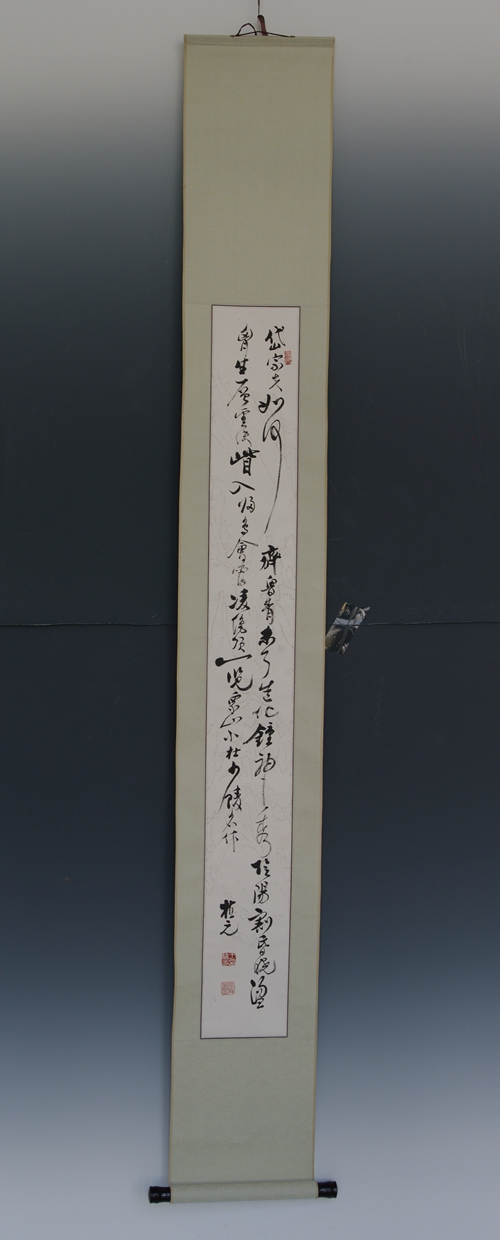 岱宗夫如何齊魯青未了造化鍾神秀陰陽割昏曉盪
胷生層雲決眥入歸鳥會當凌絕頂一覽眾山小杜少陵名作
植元